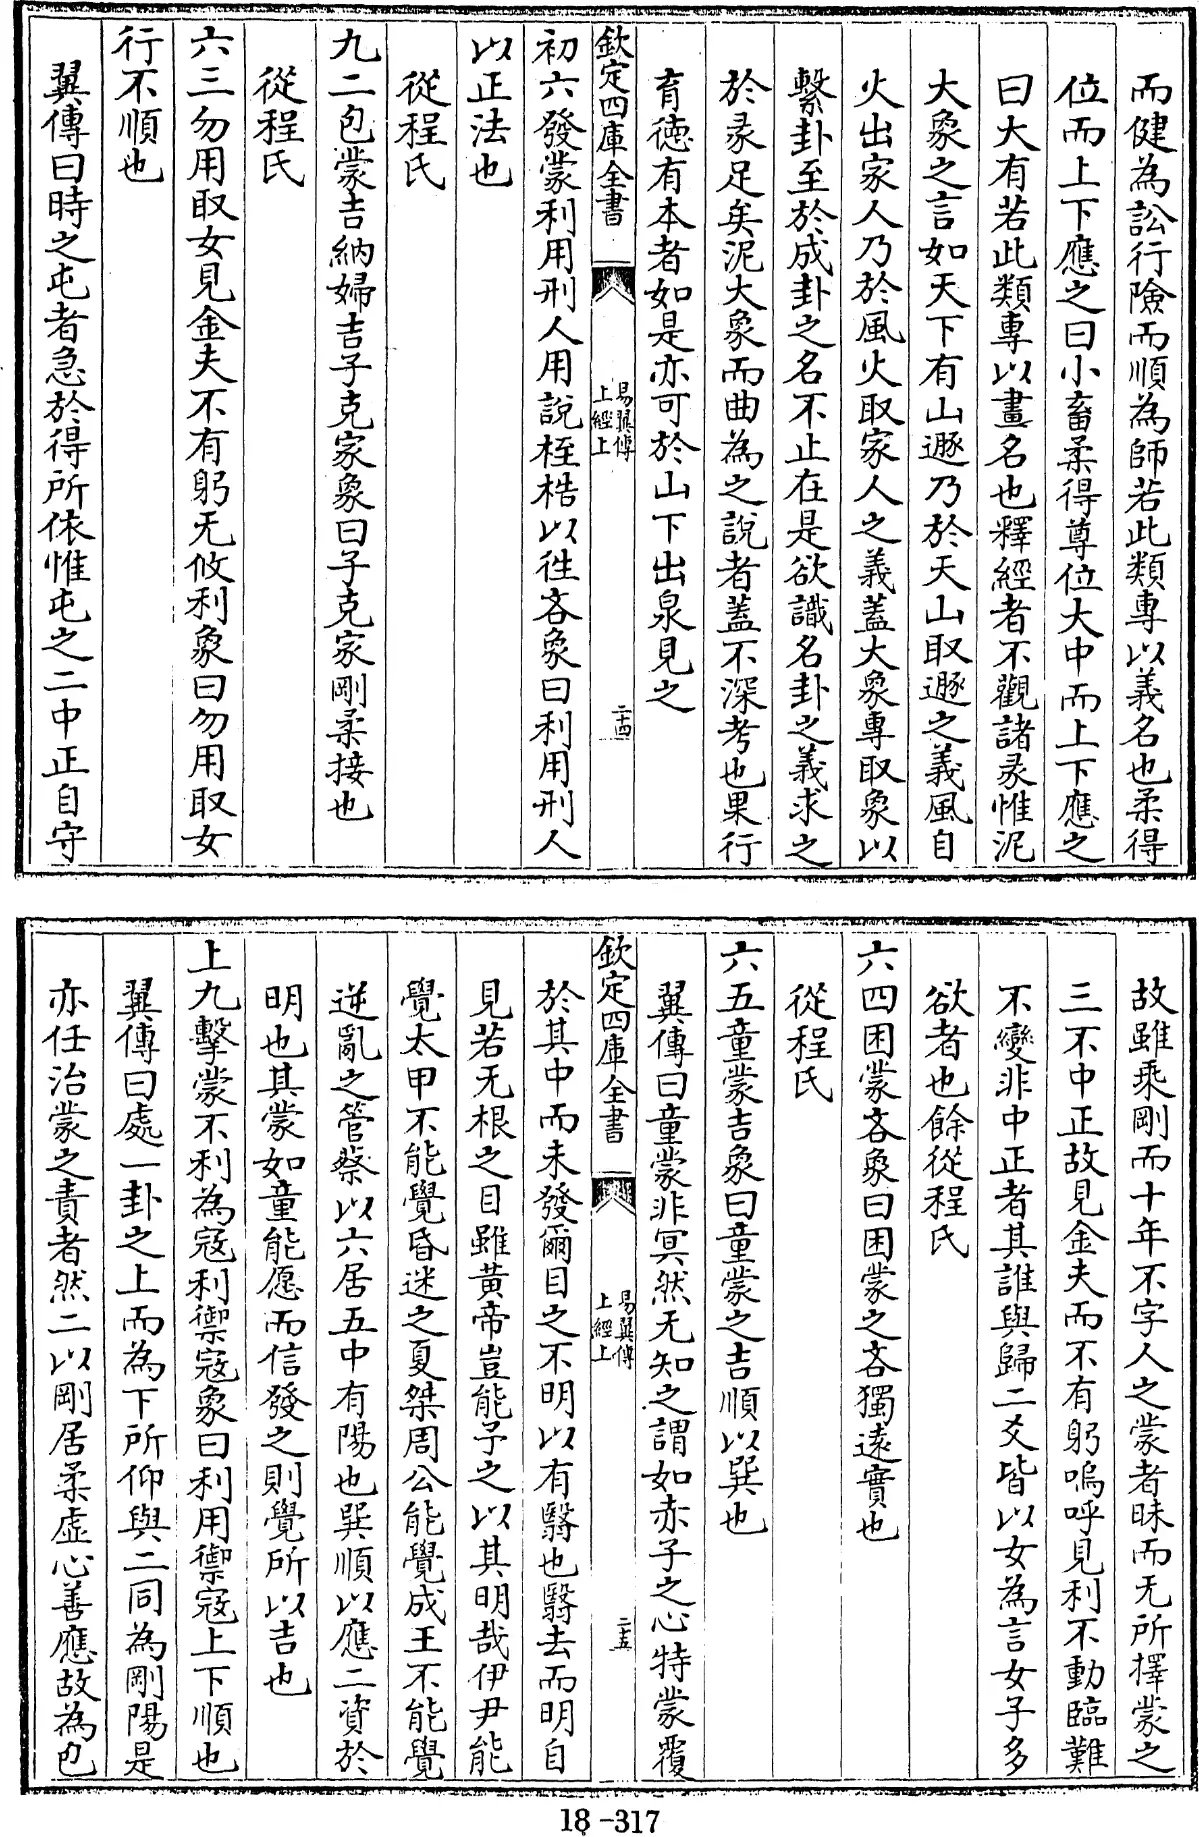 而健為訟行險而順為師若此類專以義名也柔得
位而上下應之曰小畜柔得尊位大中而上下應之
曰大有若此類專以畫名也釋經者不觀諸彖惟泥
大象之言如天下有山遯乃於天山取遯之義風自
火出家人乃於風火取家人之義蓋大象專取象以
繫卦至於成卦之名不止在是欲識名卦之義求之
於彖足矣泥大象而曲為之說者蓋不深考也果行
育德有本者如是亦可於山下出泉見之
欽定四庫全書
易翼傳
上經上
二十四
初六發蒙利用刑人用說桎梏以往吝象曰利用刑人
以正法也
從程氏
九二包蒙吉納婦吉子克家象曰子克家剛柔接也
從程氏
六三勿用取女見金夫不有躬无攸利象曰勿用取女
行不順也
翼傳曰時之屯者急於得所依惟屯之二中正自守
故雖乘剛而十年不字人之蒙者昧而无所擇蒙之
三不中正故見金夫而不有躬嗚呼見利不動臨難
不變非中正者其誰與歸二爻皆以女為言女子多
欲者也餘從程氏
六四困蒙吝象曰困蒙之吝獨遠實也
從程氏
六五童蒙吉象曰童蒙之吉順以巽也
翼傳曰童蒙非冥然无知之謂如赤子之心特蒙覆
欽定四庫全書
易翼傳
上經上
二十五
於其中而未發爾目之不明以有翳也翳去而明自
見若无根之目雖黃帝豈能予之以其明哉伊尹能
覺太甲不能覺昏迷之夏桀周公能覺成王不能覺
逆亂之管蔡以六居五中有陽也巽順以應二資於
明也其蒙如童能愿而信發之則覺所以吉也
上九擊蒙不利為寇利禦寇象曰利用禦寇上下順也
翼傳曰處一卦之上而為下所仰與二同為剛陽是
亦任治蒙之責者然二以剛居柔虛心善應故為包
18-317